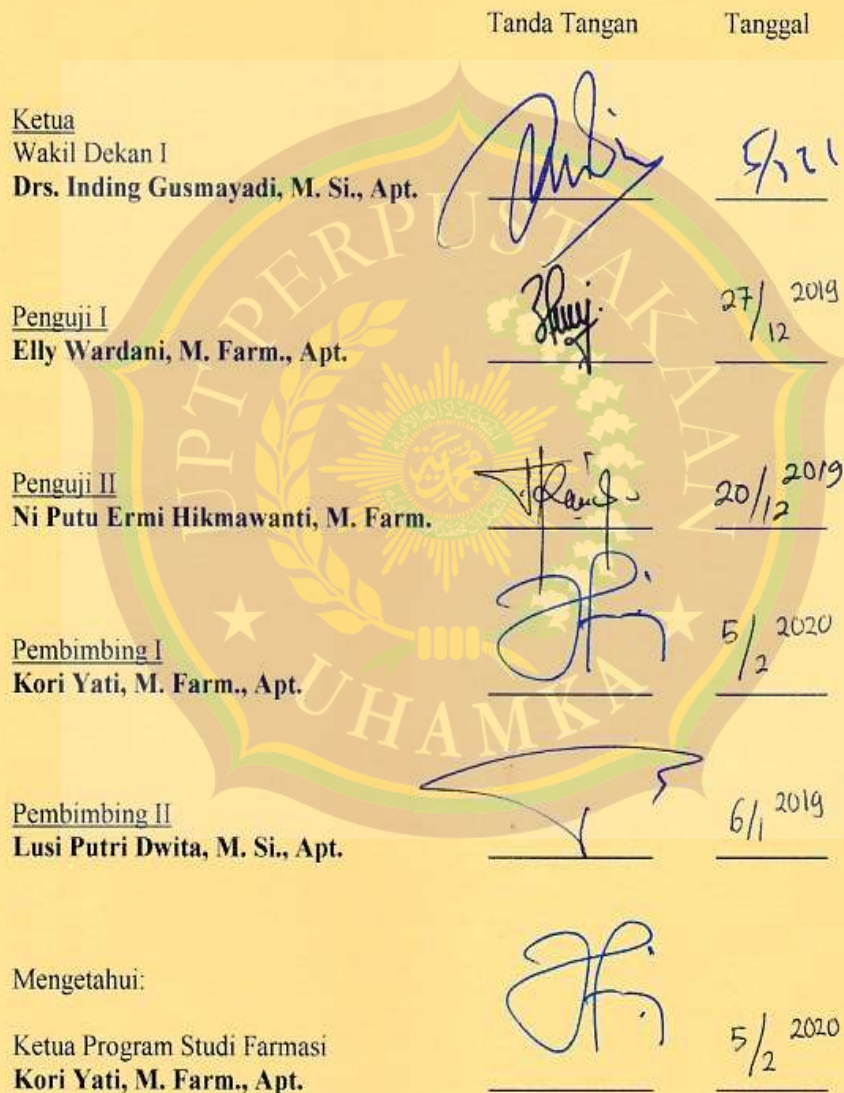 Tanda Tangan Tanggal
Ketua
Wakil Dekan I
Drs. Inding Gusmayadi, M. Si., Apt.
Penguji I
Elly Wardani, M. Farm., Apt. 27/12 2019
Penguji II
Ni Putu Ermi Hikmawanti, M. Farm. 20/12 2019
Pembimbing I
Kori Yati, M. Farm., Apt. 5/2 2020
Pembimbing II
Lusi Putri Dwita, M. Si., Apt. 6/1 2019
Mengetahui:
Ketua Program Studi Farmasi
Kori Yati, M. Farm., Apt. 5/2 2020
UPT PERPUSTAKAAN
UHAMKA